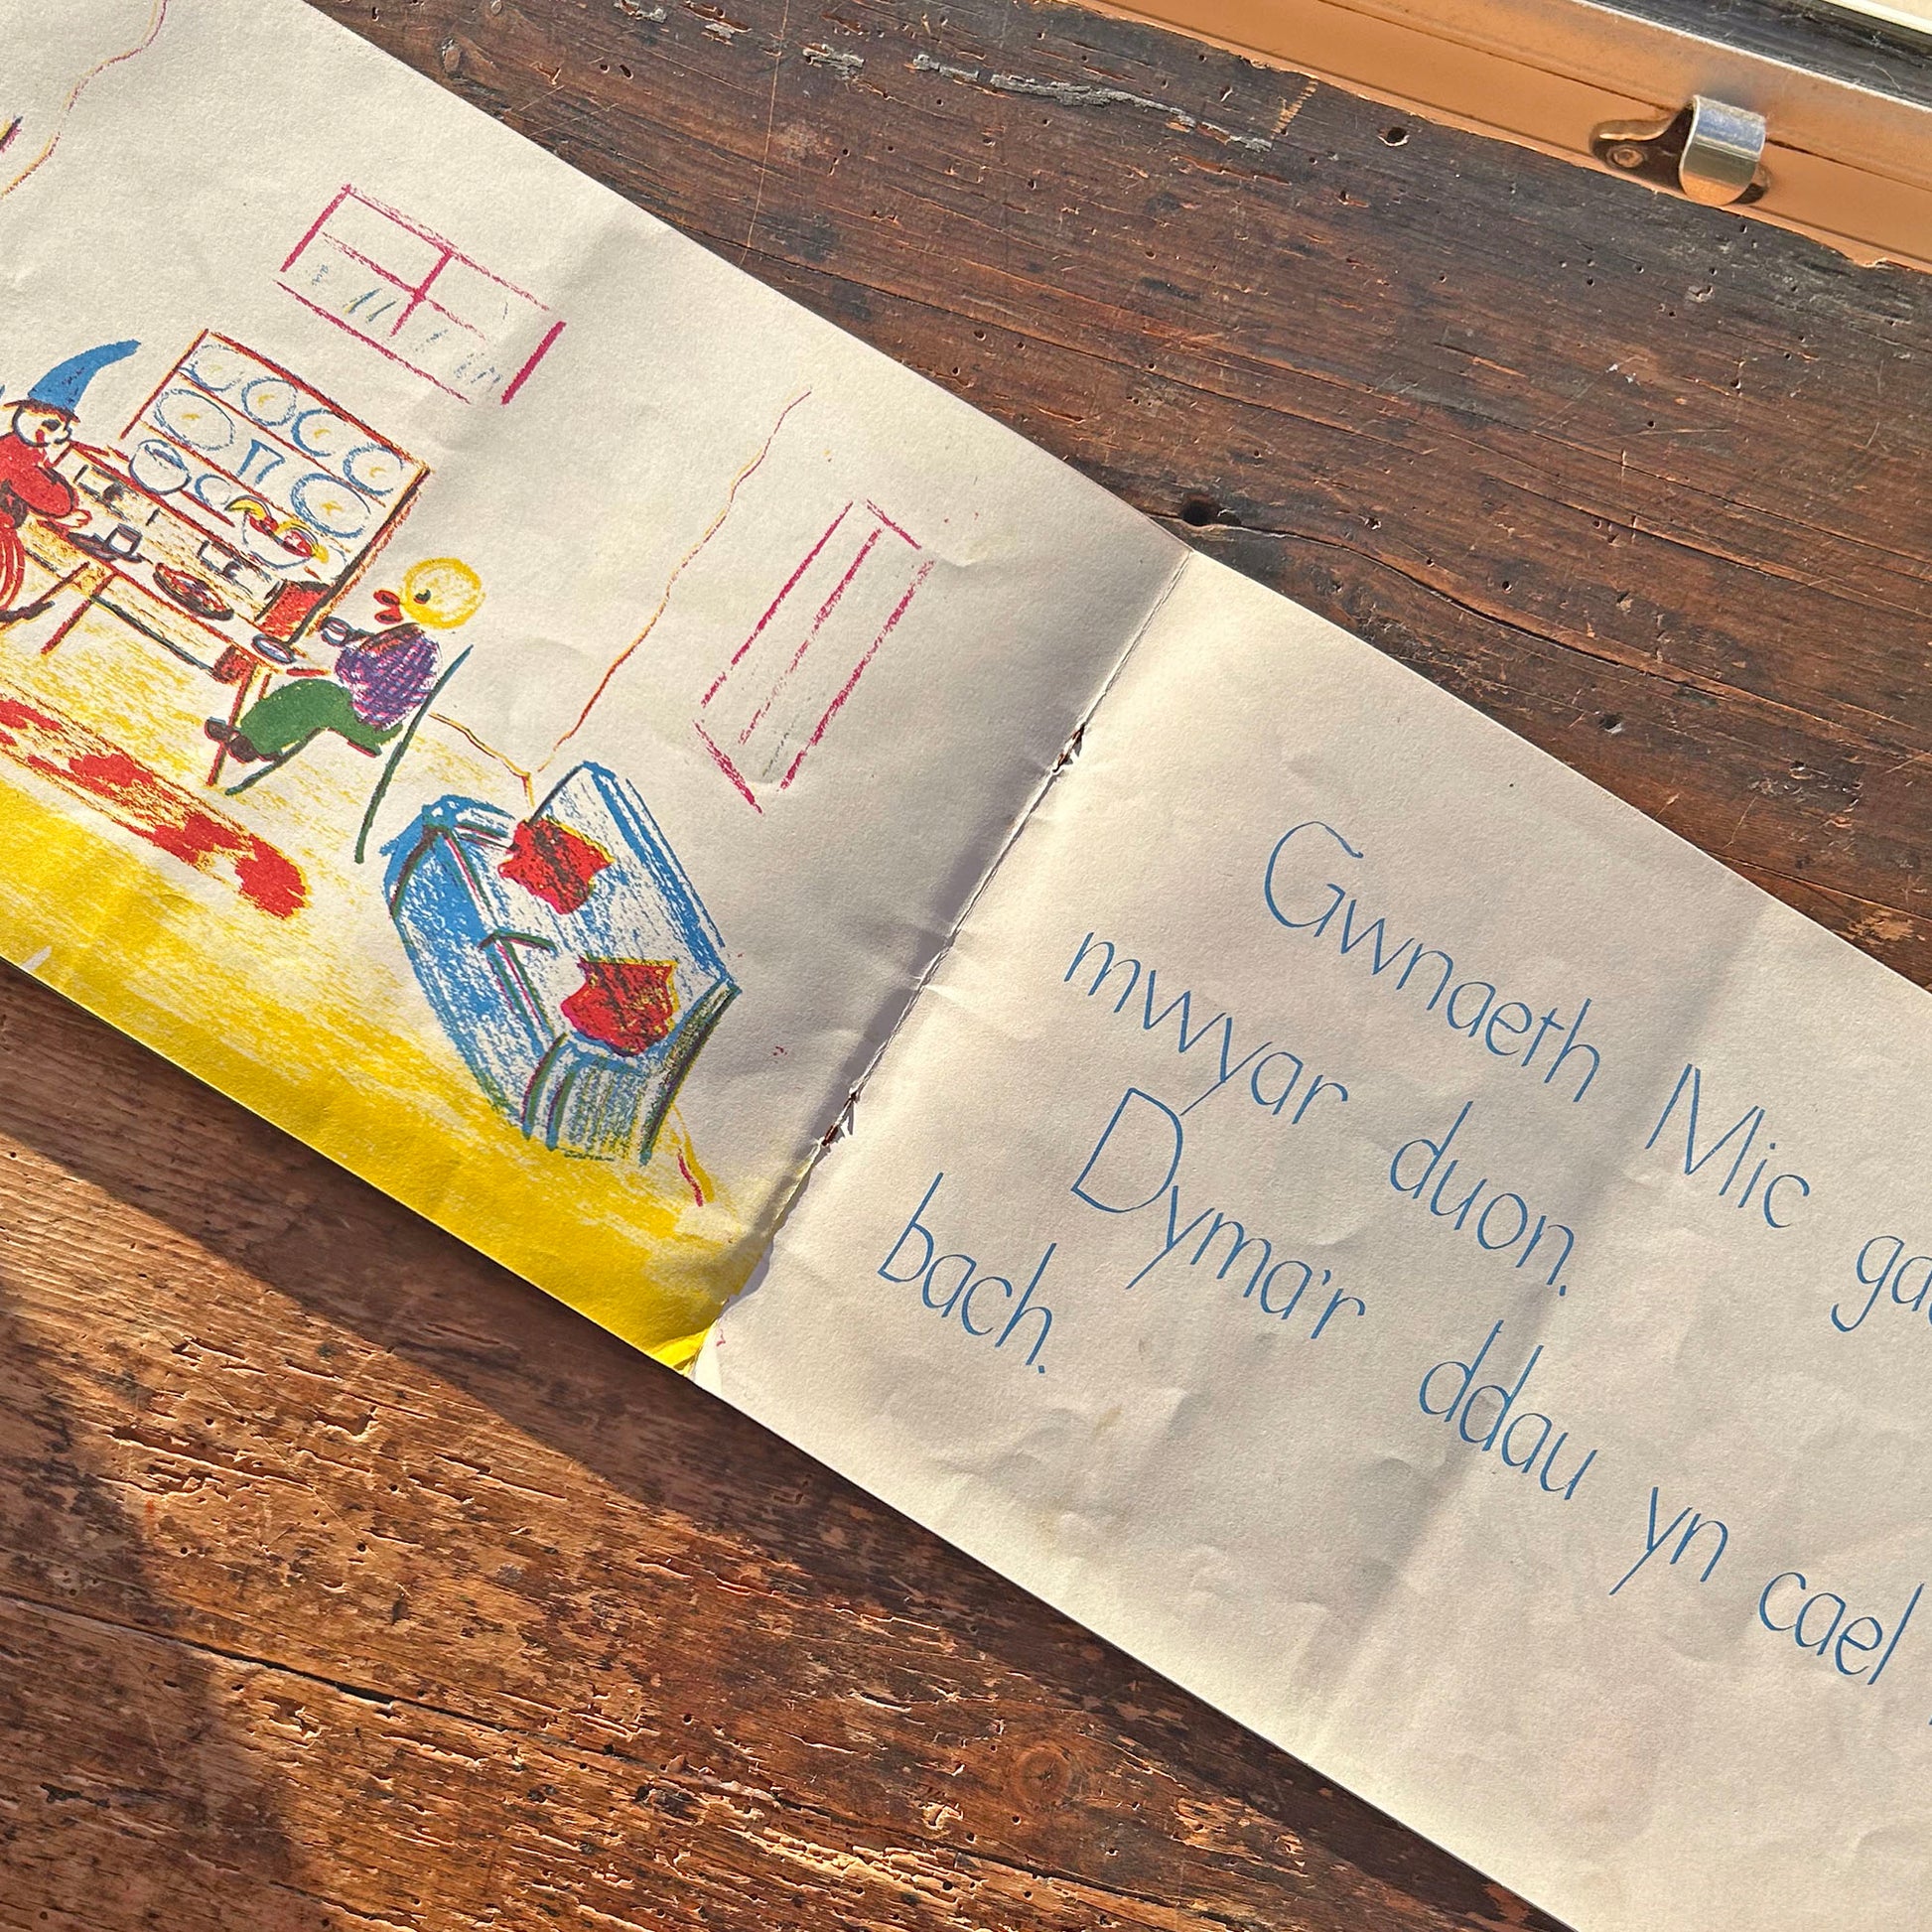 Gwnaeth Mic
mwyar duon.
Dyma'r ddau yn cael
bach.